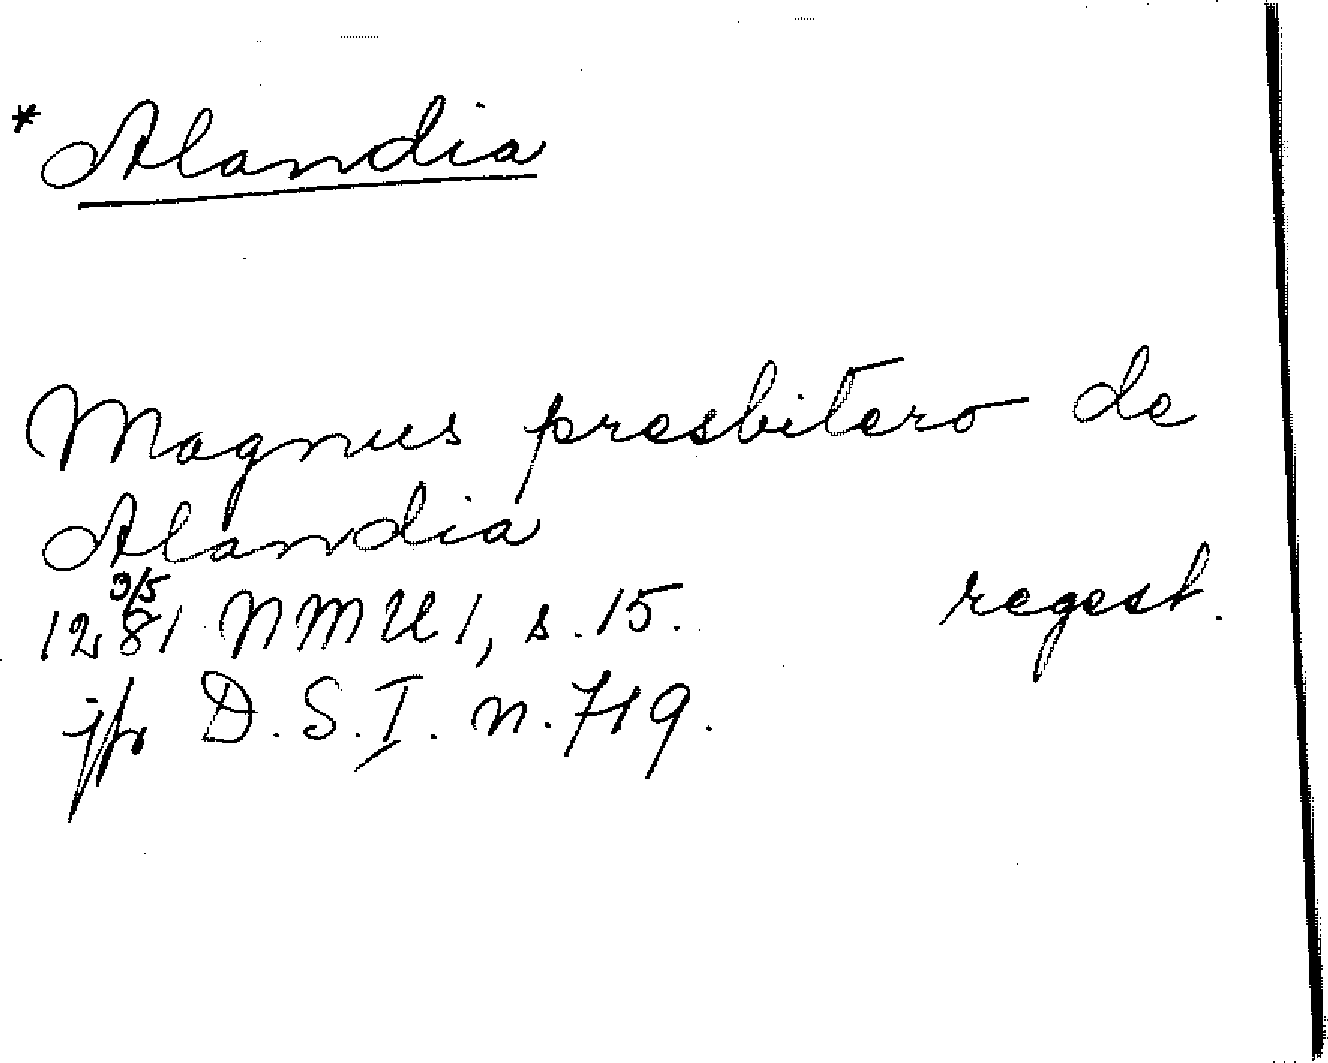 * Alandia
Magnus presbitero de
Alandia
1281 9/5 NMU 1, s. 15. regest.
jfr D. S. I. n. 719.